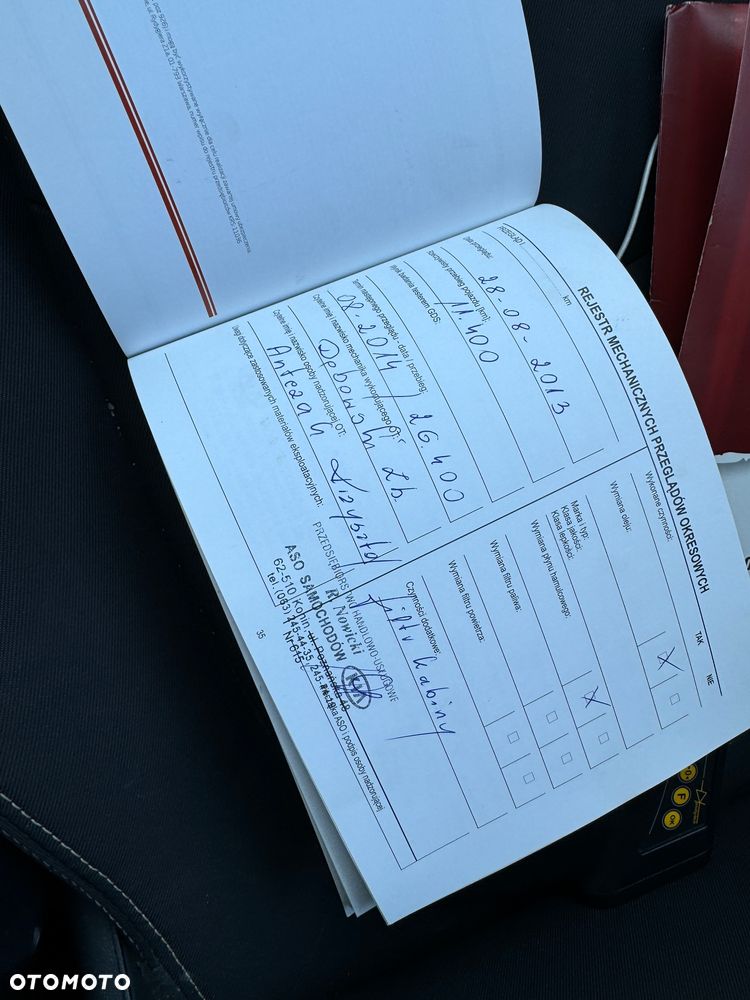 REJESTR MECHANICZNYCH PRZEGLĄDÓW OKRESOWYCH
PRZEGLĄD I
km
Data przeglądu:
28-08-2013
Rzeczywisty przebieg pojazdu [km]:
11.400
Wynik badania testerem GDS:
Termin następnego przeglądu - data i przebieg:
08-2014 / 26.400
Czytelne imię i nazwisko mechanika wykonującego OT:
Dębowski Zb.
Czytelne imię i nazwisko osoby nadzorującej OT:
Antczak Krzysztof
Uwagi dotyczące zastosowanych materiałów eksploatacyjnych:
Wykonane czynności:
TAK
NIE
Wymiana oleju:
X
Marka i typ:
Klasa jakości:
Klasa lepkości:
Wymiana płynu hamulcowego:
X
Wymiana filtru paliwa:
Wymiana filtru powietrza:
Czynności dodatkowe:
filtr kabiny
PRZEDSIĘBIORSTWO HANDLOWO-USŁUGOWE
R. Nowicki
ASO SAMOCHODÓW KIA
62-510 Konin, ul. Poznańska 48
tel. (063) 245-44-35, 245-
Pieczątka ASO i podpis osoby nadzorującej
35
F
OK
OTOMOTO